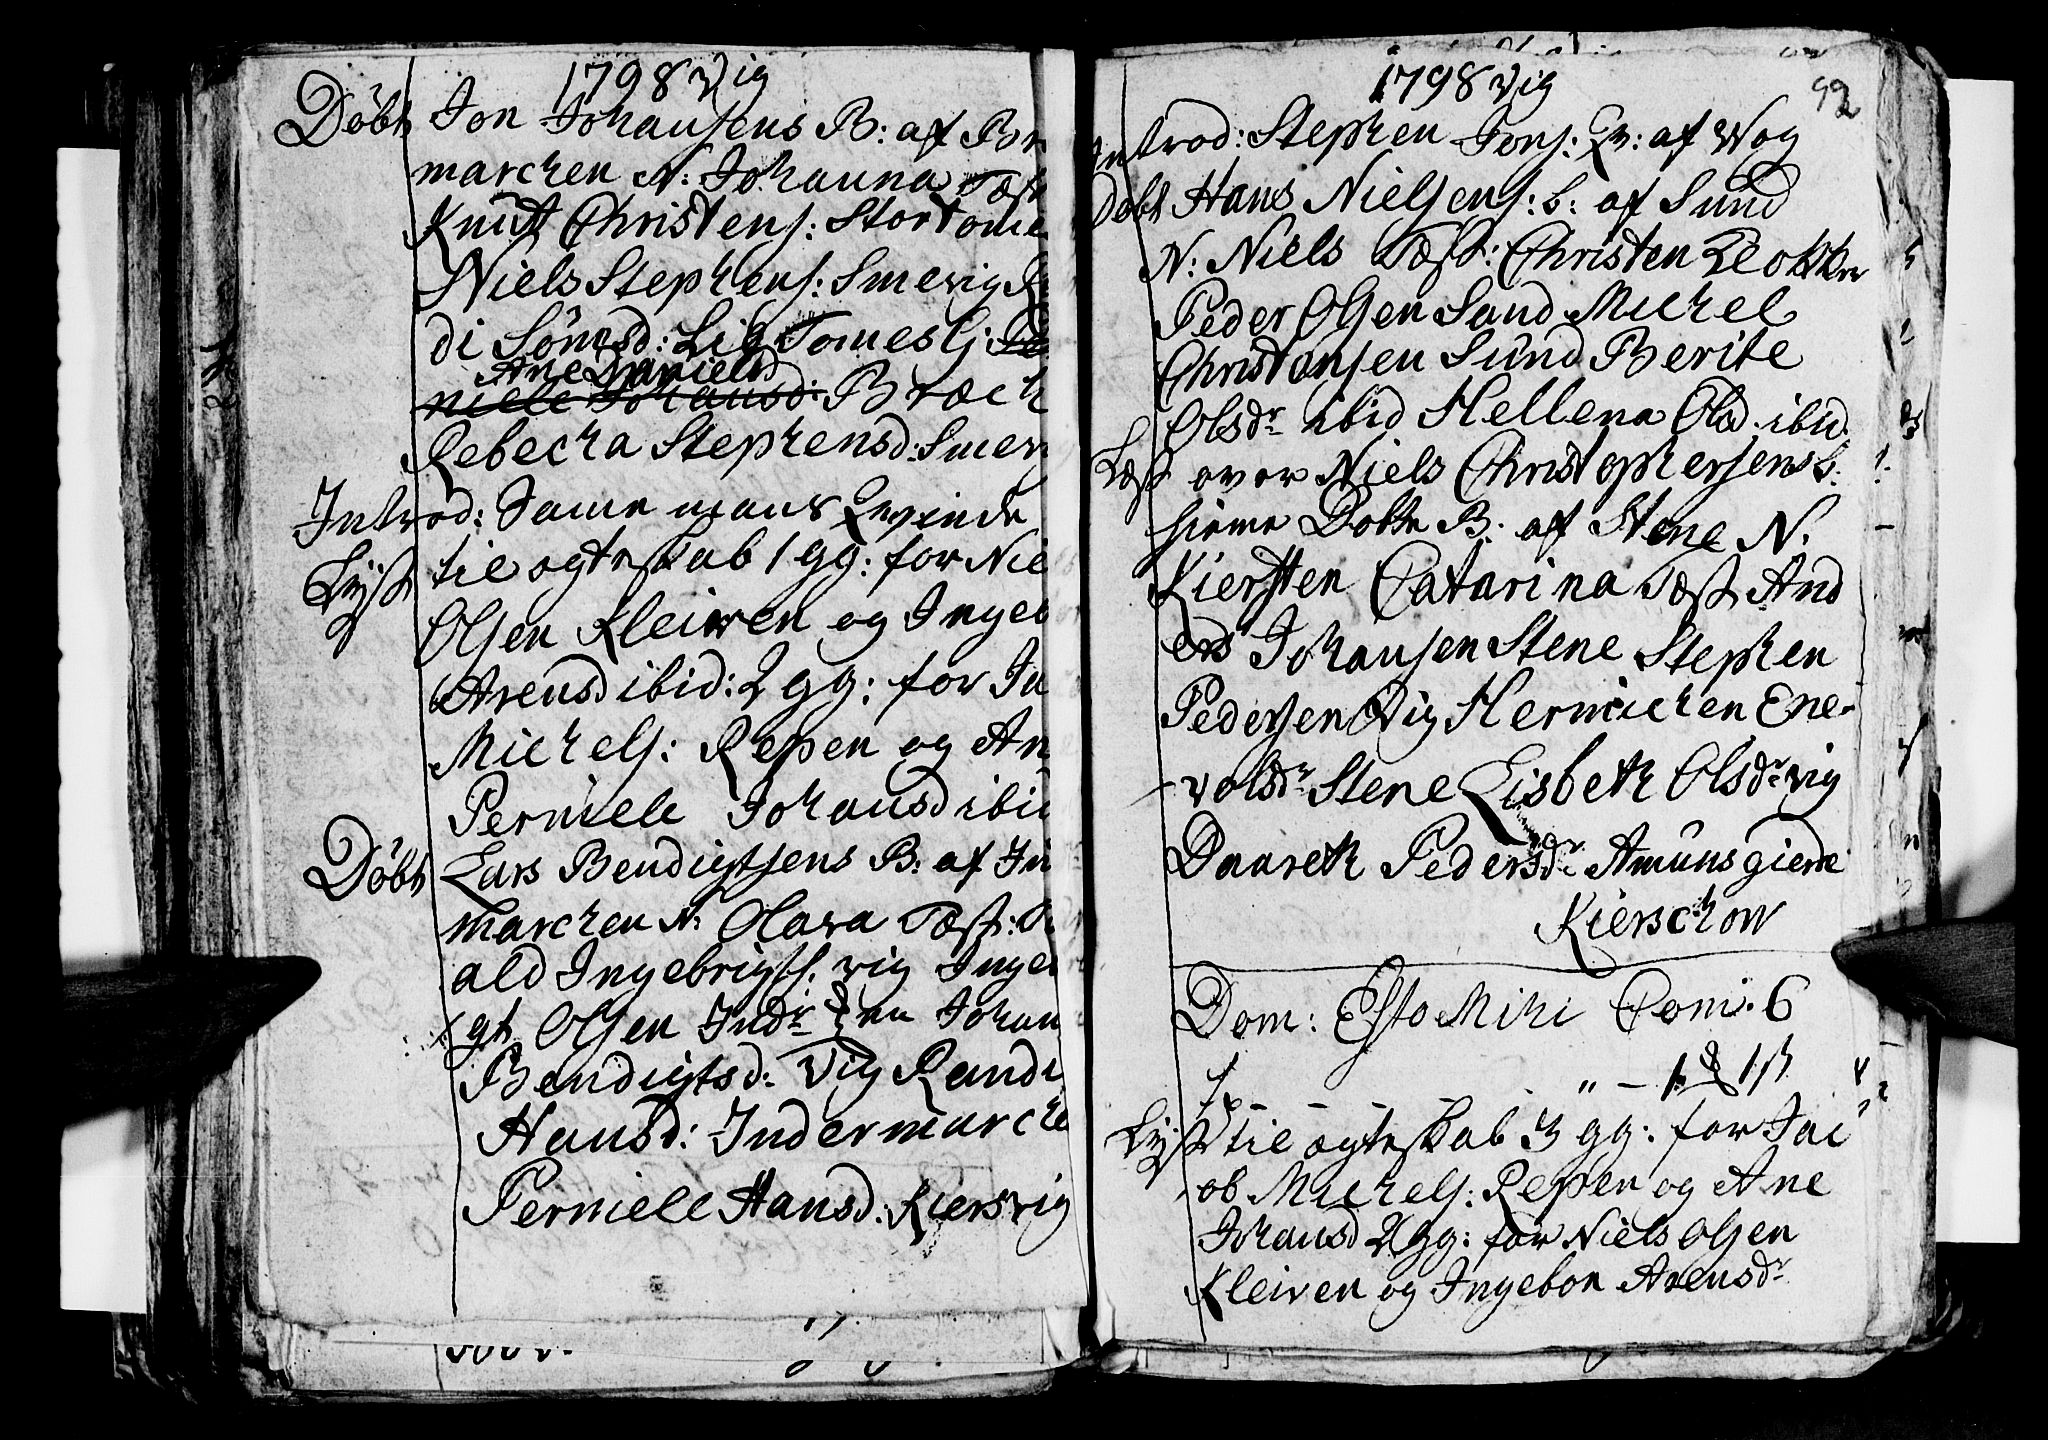 1798 Vig
Döbt Jon Johansens B: af Br
marchen N: Johanna Test
Knut Christens: Stortome
Niels Stephens: Smevig R
di Sömsd: Lia Tomeslj: Pe
Ane Daniels
niele Johansd: Bræch
Rebecha Stephensd: Smev
Introd: Samme mans Qvinde
Lyst til ogteskab 1 gg: for Nie
Olsen Kleiven og Ingeb
Arensd ibid: 2 gg: for Ja
Michels: Repen og An
Perniele Johansd ibid
Döbt Lars Bendigtsens B: af In
marchen N: Olava Test:
ald Ingebrigts. vig Inge
gt Olsen Indr Johan
Bendigtsd: Vig Randi
Hansd: Indermarche
Perniele Hansd: Kiersvig
1798 Vig
92
Introd: Stephen Jens: Qv: af Wog
Döbt Hans Nielsens: b: af Sund
N: Niels Test: Christen Klokker
Peder Olsen Sand Michel
Christensen Sund Berite
Olsdr ibid Hellena Olsd. ibid
Læst over Niels Christophersens b.
hieme Döbte B. af Stene N.
Kiersten Catarina Test And
ers Johansen Stene Stephen
Pedersen Vig Hermichen Ene-
-volsdr Stene Lisbeth Olsdr vig
Daareth Pedersdr Amunsgierde
Kierschow
Dom: Esto Mihi Comi. 6
Lyst til ogteskab 3 gg: for Jac
ob Michels: Repen og Ane
Johansd 2 gg: for Niels Olsen
Kleiven og Ingebor Arensdr